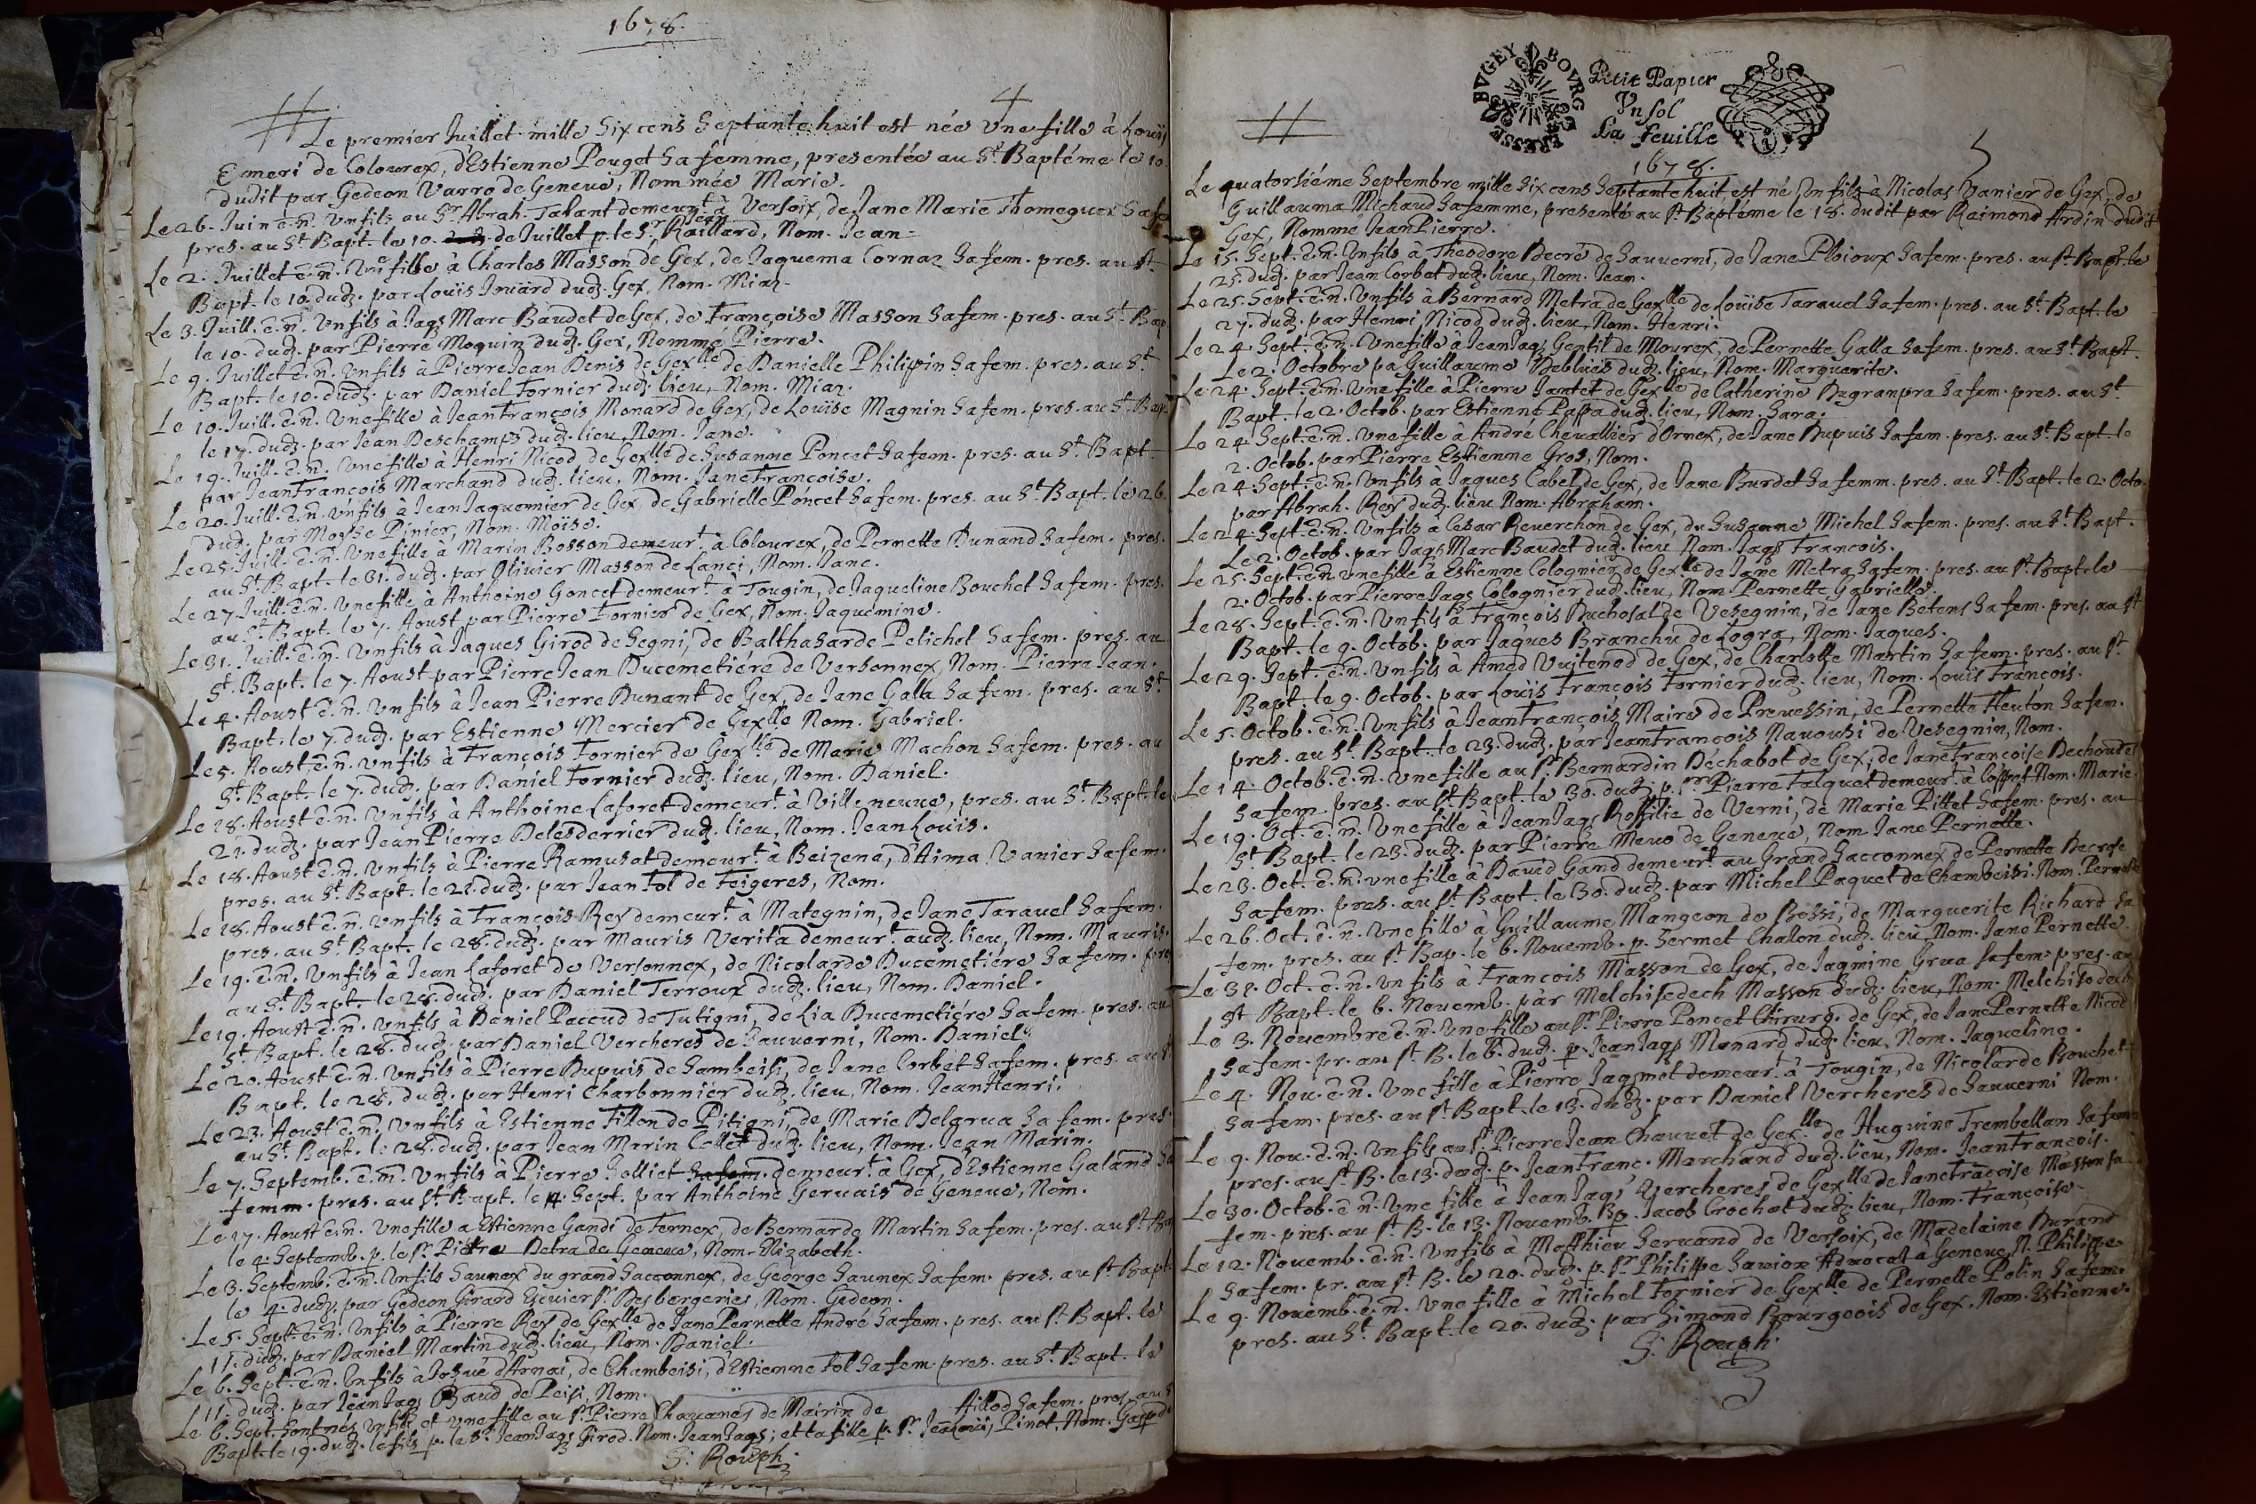 1678.
4
Le premier Juillet mille six cens septante huit est née une fille à Louïs
Emeri de Colovrex, d'Estienne Pouget sa femme, presentée au St Baptéme le 10.
dudit par Gedeon Varro de Geneve, Nommée Marie.
Le 26. Juin e.n. un fils au Sr Abrah. Talant demeurt à Versoix, de Jane Marie Thomeguex sa fe
pres. au St Bapt. le 10. de Juillet p. le Sr Jean Raillard, Nom. Jean.
Le 2. Juillet e.n. une fille à Charles Masson de Gex, de Jaquema Cornaz sa fem. pres. au St
Bapt. le 10. dudz. par Louïs Jouärd dudz. Gex, Nom. Miaz.
Le 3. Juill. e.n. un fils à Jaqs Marc Baudet de Gex, de Françoise Masson sa fem. pres. au St Bap.
le 10. dudz. par Pierre Moquin dudz. Gex, Nommé Pierre.
Le 9. Juillet e.n. un fils à Pierre Jean Denis de Gex lle de Danielle Philippin sa fem. pres. au St
Bapt. le 10. dudz. par Daniel Fornier dudz. lieu, Nom. Miaz.
Le 10. Juill. e.n. une fille à Jean François Monard de Gex, de Louïse Magnin sa fem. pres. au St Bap.
le 17. dudz. par Jean Deschamps dudz. lieu, Nom. Jane.
Le 19. Juill. e.n. une fille à Henri Nicod de Gex lle de Susanne Poncet sa fem. pres. au St Bapt.
par Jean François Marchand dudz. lieu, Nom. Jane Françoise.
Le 20. Juill. e.n. un fils à Jean Jaquemier de Gex de Gabrielle Poncet sa fem. pres. au St Bapt. le 26.
dudz. par Moyse Pinier, Nom. Moïse.
Le 25. Juill. e.n. une fille à Marin Bosson demeurt à Colovrex, de Pernette Dunand sa fem. pres.
au St Bapt. le 31. dudz. par Olivier Masson de Lanci, Nom. Jane.
Le 27. Juill. e.n. une fille à Anthoine Goncet demeurt à Tougin, de Jaqueline Bouchet sa fem. pres.
au St Bapt. le 7. Aoust par Pierre Fornier de Gex, Nom. Jaquemine.
Le 31. Juill. e.n. un fils à Jaques Girod de Segni, de Balthasarde Petichet sa fem. pres. au
St. Bapt. le 7. Aoust par Pierre Jean Ducemetiére de Versonnex, Nom. Pierre Jean.
Le 4. Aoust e.n. un fils à Jean Pierre Dunant de Gex, de Jane Galla sa fem. pres. au St
Bapt. le 7. dudz. par Estienne Mercier de Gex lle Nom. Gabriel.
Le 5. Aoust e.n. un fils à François Fornier de Gex lle de Marie Machon sa fem. pres. au
St. Bapt. le 7. dudz. par Daniel Fornier dudz. lieu, Nom. Daniel.
Le 18. Aoust e.n. un fils à Anthoine Laforet demeurt à Ville neuve, pres. au St Bapt. le
21. dudz. par Jean Pierre Delesderrier dudz. lieu, Nom. Jean Louïs.
Le 18. Aoust e.n. un fils à Pierre Ramusat demeurt à Beizena, d'Aima Vanier sa fem.
pres. au St Bapt. le 28. dudz. par Jean Fol de Feigeres, Nom.
Le 18. Aoust e.n. un fils à François Rey demeurt à Mategnin, de Jane Taravel sa fem.
pres. au St Bapt. le 28. dudz. par Mauris Verita demeurt audz. lieu, Nom. Mauris.
Le 19. e.n. un fils à Jean Laforet de Versonnex, de Nicolarde Ducemetiére sa fem. pres
au St Bapt. le 28. dudz. par Daniel Terroux dudz. lieu, Nom. Daniel.
Le 19. Aoust e.n. un fils à Daniel Pacoud de Tutigni, de Lia Ducemetiére sa fem. pres. au
St Bapt. le 28. dudz. par Daniel Vercheres de Sauverni, Nom. Daniel.
Le 20. Aoust e.n. un fils à Pierre Dupuis de Sambeisi, de Jane Corbet sa fem. pres. au St
Bapt. le 28. dudz. par Henri Charbonnier dudz. lieu, Nom. Jean Henri.
Le 23. Aoust e.n. un fils à Estienne Fillon de Pitigni, de Marie Delgrua sa fem. pres.
au St. Bapt. le 28. dudz. par Jean Marin Collet dudz. lieu, Nom. Jean Marin.
Le 7. Septemb. e.n. un fils à Pierre Solliet sa fem. demeurt à Gex, d'Estienne Galand sa
femm. pres. au St Bapt. le 4. Sept. par Anthoine Gervais de Geneve, Nom.
Le 17. Aoust e.n. une fille à Estienne Gandi de Fernex, de Bernarde Martin sa fem. pres. au St Bap
le 4. Septemb. p. le Sr Pierre Detra de Geneve, Nom. Elizabeth.
Le 3. Septemb. e.n. un fils Saunex du grand Sacconnex, de George Saunex sa fem. pres. au St Bapt.
le 4. dudz. par Gedeon Girard Sr Desbergeries, Nom. Gedeon.
Le 5. Sept. e.n. un fils à Pierre Rey de Gex lle de Jane Pernette André sa fem. pres. au St Bapt. le
11. dudz. par Daniel Martin dudz. lieu, Nom. Daniel.
Le 6. Sept. e.n. un fils à Josué d'Arnai, de Chambeisi, d'Estienne Fol sa fem. pres. au St Bapt. le
11. dudz. par Jean Jaqs Baud de Peisi, Nom.
Le 6. Sept. sont nés un fils et une fille au Sr Pierre Chavanes de Mairin de Aillod sa fem. pres. au S
Bapt. le 19. dudz. le fils p. le Sr Jean Jaqs Girod. Nom. Jean Jaqs; et la fille p. Sr Jean Louïs Pinot, Nom. Gasparde
S: Rouph
BUGEY BOURG BRESSE
Petit Papier
Un sol
La feuille
5
1678.
Le quatorsiéme Septembre mille six cens septante huit, est né un fils à Nicolas Vanier de Gex, de
Guillauma Michaud sa femme, presenté au St Baptéme le 18. dudit par Raimond Ardin dudit
Gex, Nommé Jean Pierre.
Le 15. Sept. e.n. un fils à Theodore Decré de Sauverni, de Jane Plojoux sa fem. pres. au St Bapt. le
25. dudz. par Jean Corbet dudz. lieu, Nom. Jean.
Le 25. Sept. e.n. un fils à Bernard Metra de Gex lle de Louïse Taravel sa fem. pres. au St Bapt. le
27. dudz. par Henri Nicod dudz. lieu, Nom. Henri.
Le 24. Sept. e.n. une fille à Jean Jaqs Gentil de Mourex, de Pernette Galla sa fem. pres. au St Bapt.
Le 2. Octobre pa Guillaume Deblües dudz. lieu, Nom. Marguerite.
Le 24. Sept. e.n. une fille à Pierre Jantet de Gex lle de Catherine Degrampra sa fem. pres. au St
Bapt. le 2. Octob. par Estienne Passa dudz. lieu, Nom. Sara.
Le 24. Sept. e.n. une fille à André Chevallier d'Ornex, de Jane Dupuis sa fem. pres. au St. Bapt. le
2. Octob. par Pierre Estienne Gros, Nom.
Le 24. Sept. e.n. un fils à Jaques Cabel de Gex, de Jane Burdet sa femm. pres. au St Bapt. le 2. Octo.
par Abrah. Rey dudz. lieu Nom. Abraham.
Le 24. Sept. e.n. un fils à Cesar Reverchon de Gex, de Susanne Michel sa fem. pres. au St Bapt.
Le 2. Octob. par Jaqs Marc Baudet dudz. lieu, Nom. Jaqs François.
Le 25. Sept. e.n. une fille à Estienne Colognier de Gex lle de Jane Metra sa fem. pres. au St. Bapt. le
2. Octob. par Pierre Jaqs Colognier dudz. lieu, Nom. Pernette Gabrielle.
Le 28. Sept. e.n. un fils à François Duchosal de Vesegnin, de Jane Betens sa fem. pres. au St
Bapt. le 9. Octob. par Jaques Branchu de Logra, Nom. Jaques.
Le 29. Sept. e.n. un fils à Amed Vuitenod de Gex, de Charlotte Martin sa fem. pres. au St
Bapt. le 9. Octob. par Louïs François Fornier dudz. lieu, Nom. Louïs François.
Le 5. Octob. e.n. un fils à Jean François Maire de Prevessin, de Pernette Heuton sa fem.
pres. au St Bapt. le 23. dudz. par Jean François Navoussi de Vesegnin, Nom.
Le 14. Octob. e.n. une fille au Sr Bernardin Dechabot de Gex, de Jane Françoise Dechoudé
sa fem. pres. au St Bapt. le 30. dudz. p. Sr Pierre Falquet demeurt à Nom. Marie.
Le 19. Oct. e.n. une fille à Jean Jaqs Rossilie de Verni, de Marie Pittet sa fem. pres. au
St Bapt. le 23. dudz. par Pierre Mevo de Geneve, Nom. Jane Pernette.
Le 23. Oct. e.n. une fille à David Gand demeurt au Grand Sacconnex de Pernette Decrose
sa fem. pres. au St Bapt. le 30. dudz. par Michel Paquet de Chambeisi. Nom. Pernette
Le 26. Oct. e.n. une fille à Guillaume Mangeon de Bossi, de Marguerite Richard sa
fem. pres. au St Bap. le 6. Novemb. p. Sermet Chalon dudz. lieu, Nom. Jane Pernette.
Le 31. Oct. e.n. un fils à François Masson de Gex, de Jaqmine Grua sa fem. pres. au
St Bapt. le 6. Novemb. par Melchisedech Masson dudz. lieu, Nom. Melchisedech
Le 3. Novembre e.n. une fille au Sr Pierre Poncet Chirurg. de Gex, de Jane Pernette Nicod
sa fem. pr. au St B. le 6. dudz. p. Jean Jaqs Monard dudz. lieu, Nom. Jaqueline.
Le 4. Nov. e.n. une fille à Pierre Jaqmet demeurt à Tougin, de Nicolarde Bouchet
sa fem. pres. au St Bapt. le 13. dudz. par Daniel Vercheres de Sauverni Nom.
Le 9. Nov. e.n. un fils au Sr Pierre Jean Chauvet de Gex lle de Huguine Trembellan sa fem.
pres. au St B. le 13. dudz. p. Jean Franc. Marchand dudz. lieu, Nom. Jean François.
Le 30. Octob. e.n. une fille à Jean Jaqs Vercheres de Gex lle de Jane Fraçoise Masson sa
fem. pres. au St B. le 13. Novemb. p. Jacob Crochet dudz. lieu, Nom. Françoise.
Le 12. Novemb. e.n. un fils à Matthieu Servand de Versoix, de Madelaine Durand
sa fem. pr. au St B. le 20. dudz. p. Sr Philippe Savion Advocat à Geneve, N. Philippe.
Le 9. Novemb. e.n. une fille à Michel Fornier de Gex lle de Pernette Polin sa fem.
pres. au St Bapt. le 20. dudz. par Simond Bourgeois de Gex. Nom. Estienne.
S: Rouph